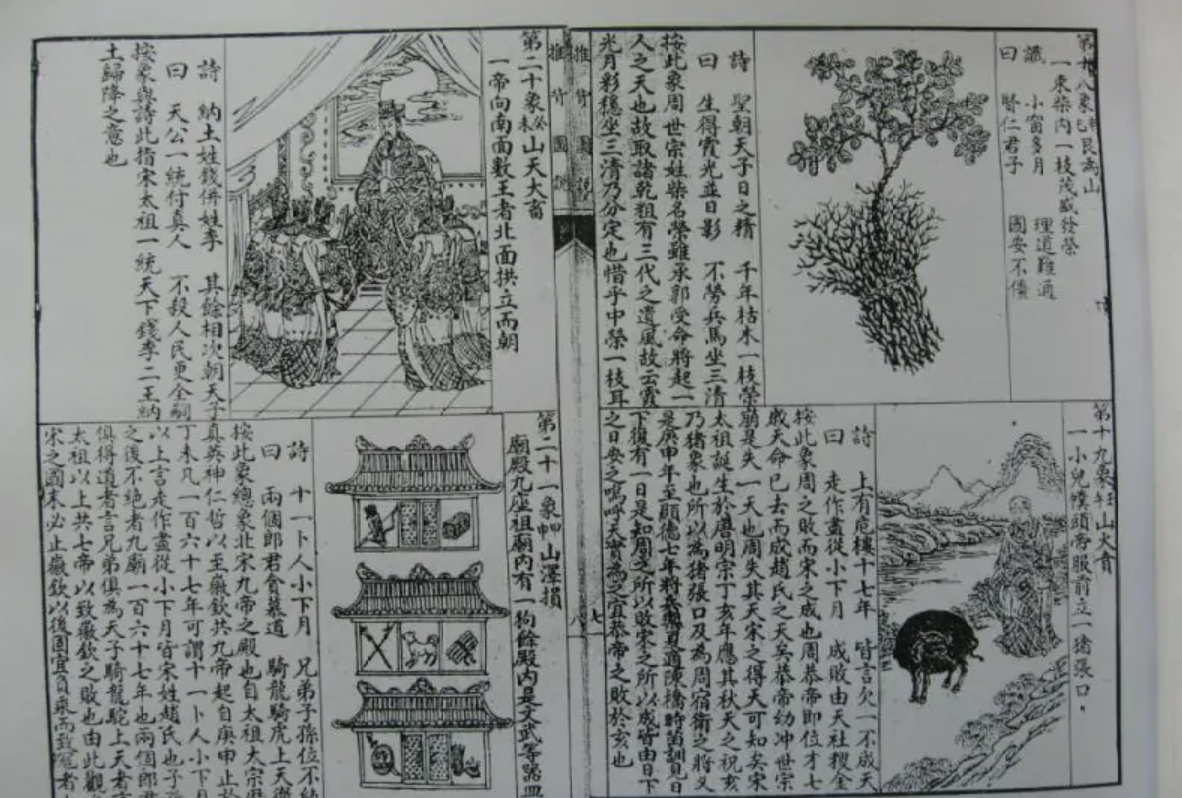 第十八象辛巳艮為山
一束柴內一枝茂盛發榮
讖 小窗多月 理道難通
曰 賢仁君子 國安不傾
詩 聖朝天子日之精 千年枯木一枝榮
曰 生得霞光並日影 不勞兵馬坐三清
按此象周世宗姓柴名榮雖承郭受命將起一
人之天也故取諸乾祖有三代之遺風故云霞
光月彩穩坐三清乃分定也惜乎中榮一枝耳
第十九象壬午山火賁
一小兒幞頭帝服前立一猪張口
詩 上有危樓十七年 皆言欠一不成天
曰 走作盡從小下月 成敗由天社稷全
按此象周之敗而宋之成也周恭帝即位才七
歲天命已去而成趙氏之天矣恭帝幼冲世宗
崩是失一天也周失其天宋之得天可知矣宋
太祖誕生於唐明宗丁亥年應其秋天之祝亥
乃猪象也所以為猪張口及為周宿衛之將又
是庚申年至顯德七年將
陳橋時苗訓見日
下復有一日是知周之所以敗宋之所以成皆由日下
之日安之嗚呼天實為之宜恭帝之敗於亥也
推背圖說
七
推背圖說
八
第二十象癸未山天大畜
一帝向南面數王者北面拱立而朝
詩 納土姓錢併姓李 其餘相次朝天子
曰 天公一統付真人 不殺人民更全嗣
按象與詩此指宋太祖一統天下錢李二王納
土歸降之意也
第二十一象甲申山澤損
廟殿九座祖廟內有一狗餘殿內是文武等器皿
詩 十一卜人小下月 兄弟子孫位不
曰 兩個郎君會墓道 騎龍騎虎上天
按此象總象北宋九帝之殿也自太祖太宗
真英神仁哲以至徽欽共九帝起自庚申止於
丁未凡一百六十七年可謂十一卜人小下月
以上言走作盡從小下月皆宋姓趙氏也子孫
之後不絕者九廟一百六十七年也兩個郎君
俱得道者言兄弟俱為天子騎龍駝上天者
太祖以上共七帝以致徽欽之敗也由此觀
宋之國未必止徽欽以後國宜負乘而致寇者